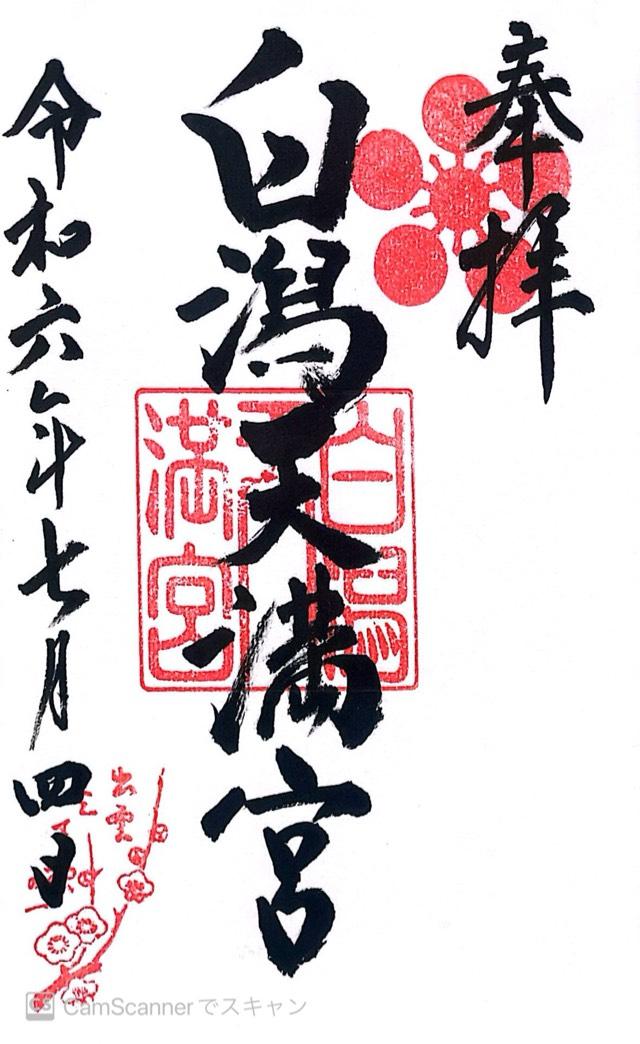 奉拝
白潟天満宮
白潟天満宮
令和六年七月四日
出雲
CamScannerでスキャン